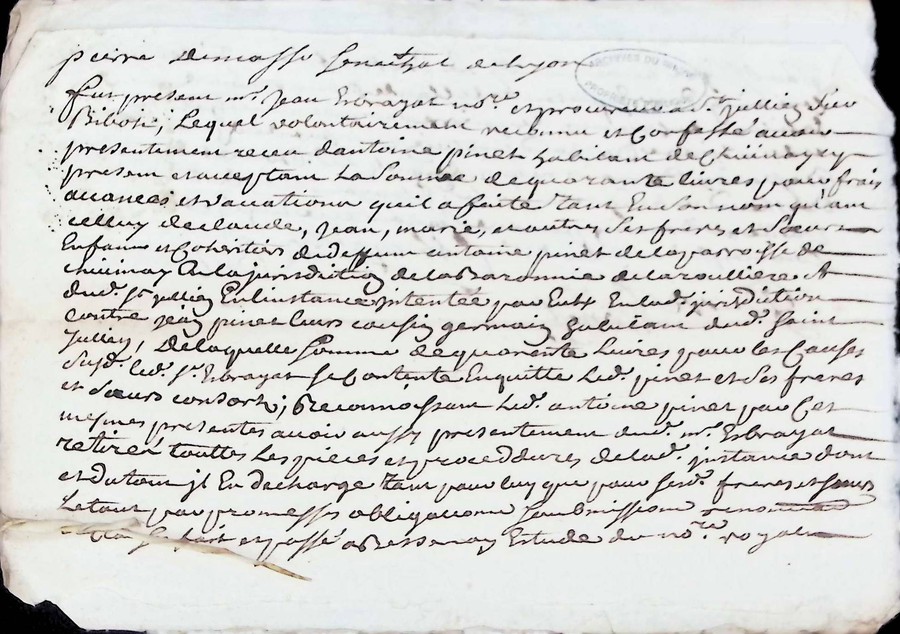 pierre Demasso Senechal de Lyon
ARCHIVES DU
PROPRIETE
Fut present mr. Jean Esbrayat nore. et procureur a St. jullien sur
Bibost, Lequel volontairement reconnu et Confessé avoir
presentement receu dantoine pinet habitant de
present et acceptant La Somme de quarante livres pour frais
avances et vacations quil a faite tant En Son nom qu'au
celluy de claude, Jean, marie, et autres Ses freres et Soeurs
Enfans et Coheritiers de deffunt antoine pinet de la parroisse de
A la jurisdiction de la Baronnie de la roulliere et
dud. St jullien En linstance jntentée par Eux En lad. jurisdiction
contre Jean pinet leurs cousin germain habitant dud. Saint
Jullien, De laquelle Somme de quarante Livres pour les Causes
Susd. led. Sr. Esbrayat Se Contente En quitte Led. pinet et Ses freres
et Soeurs consorts; Reconnoissant Led. antoine pinet par Ces
mesmes presentes avoir aussy presentement dud. mr. Esbrayat
retiré touttes Les pieces et proceddures de lad. jnstance dont
et du tout jl En decharge tant pour luy que pour sesd. freres et soeurs
Le tout par promesses obligations Soubmissions renon
fait et passé a Bessenay Estude du nore. royal